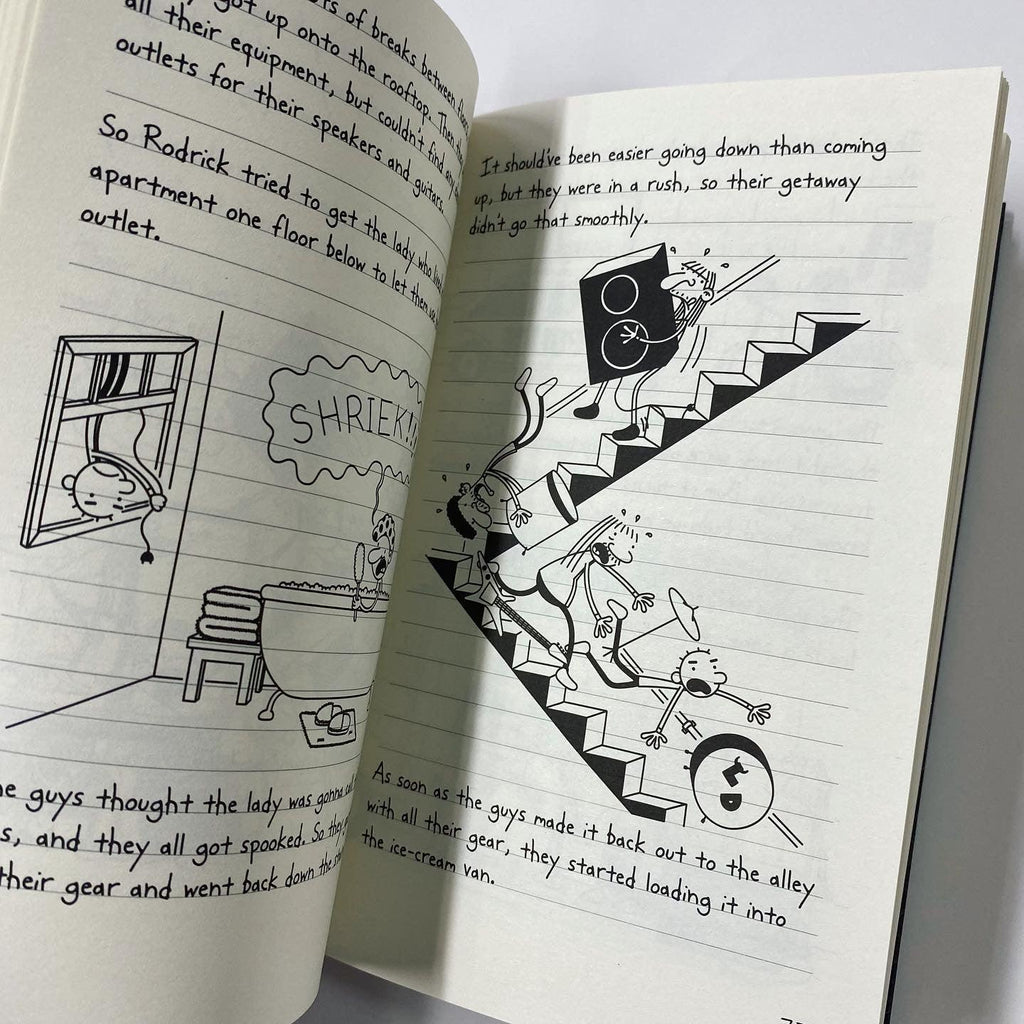 of breaks between
got up onto the rooftop. Then
all their equipment, but couldn't find any
outlets for their speakers and guitars.
So Rodrick tried to get the lady who
apartment one floor below to let them
outlet.
SHRIEK!!
guys thought the lady was gonna
and they all got spooked. So they
their gear and went back down the
It should've been easier going down than coming
up, but they were in a rush, so their getaway
didn't go that smoothly.
As soon as the guys made it back out to the alley
with all their gear, they started loading it into
the ice-cream van.